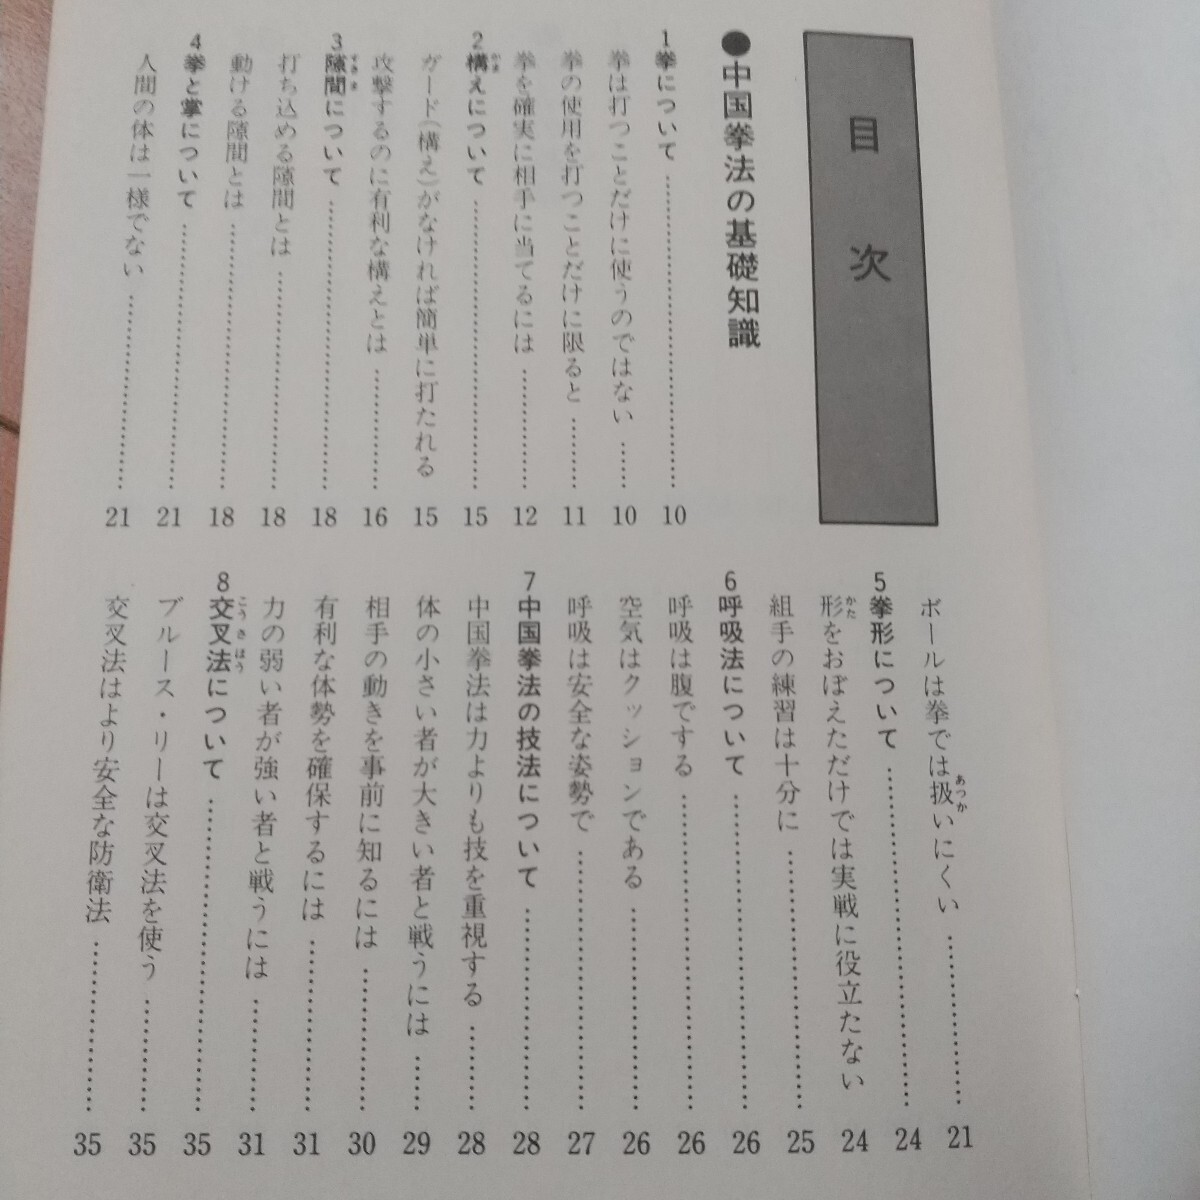 目次
●中国拳法の基礎知識
1 拳について 10
拳は打つことだけに使うのではない 10
拳の使用を打つことだけに限ると 11
拳を確実に相手に当てるには 12
2 構えについて 15
ガード(構え)がなければ簡単に打たれる 15
攻撃するのに有利な構えとは 16
3 隙間について 18
打ち込める隙間とは 18
動ける隙間とは 18
4 拳と掌について 21
人間の体は一様でない 21
ボールは拳では扱いにくい 21
5 拳形について 24
形をおぼえただけでは実戦に役立たない 24
組手の練習は十分に 25
6 呼吸法について 26
呼吸は腹でする 26
空気はクッションである 26
呼吸は安全な姿勢で 27
7 中国拳法の技法について 28
中国拳法は力よりも技を重視する 28
体の小さい者が大きい者と戦うには 29
相手の動きを事前に知るには 30
有利な体勢を確保するには 31
力の弱い者が強い者と戦うには 31
8 交叉法について 35
ブルース・リーは交叉法を使う 35
交叉法はより安全な防衛法 35